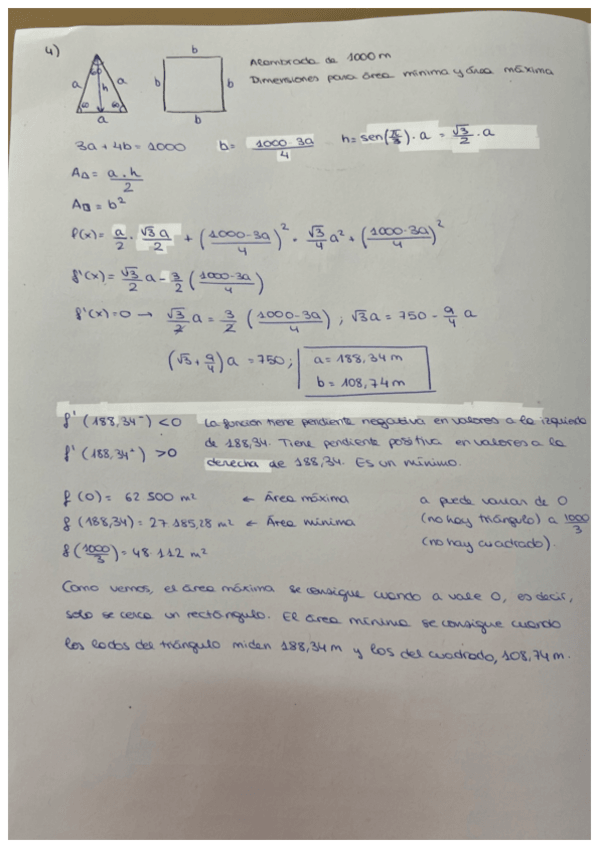 4)
b
Alambrada de 1000 m
Dimensiones para área mínima y área máxima
60
a h a
b b
60 60
a
b
3a + 4b = 1000 b = (1000-3a)/4 h = sen(π/3) · a = √3/2 · a
A△ = a.h/2
A□ = b²
f(x) = a/2 · √3a/2 + ((1000-3a)/4)² = √3/4 a² + ((1000-3a)/4)²
f'(x) = √3/2 a - 3/2 ((1000-3a)/4)
f'(x) = 0 → √3/2 a = 3/2 ((1000-3a)/4) ; √3a = 750 - 9/4 a
(√3 + 9/4) a = 750 ; a = 188,34 m
b = 108,74 m
f' (188,34⁻) < 0 La función tiene pendiente negativa en valores a la izquierda
de 188,34. Tiene pendiente positiva en valores a la
f' (188,34⁺) > 0
derecha de 188,34. Es un mínimo.
f (0) = 62 500 m² ← Área máxima a puede variar de 0
f (188,34) = 27 185,28 m² ← Área mínima (no hay triángulo) a 1000/3
f (1000/3) = 48.112 m² (no hay cuadrado).
Como vemos, el área máxima se consigue cuando a vale 0, es decir,
solo se cerca un rectángulo. El área mínima se consigue cuando
los lados del triángulo miden 188,34 m y los del cuadrado, 108,74 m.